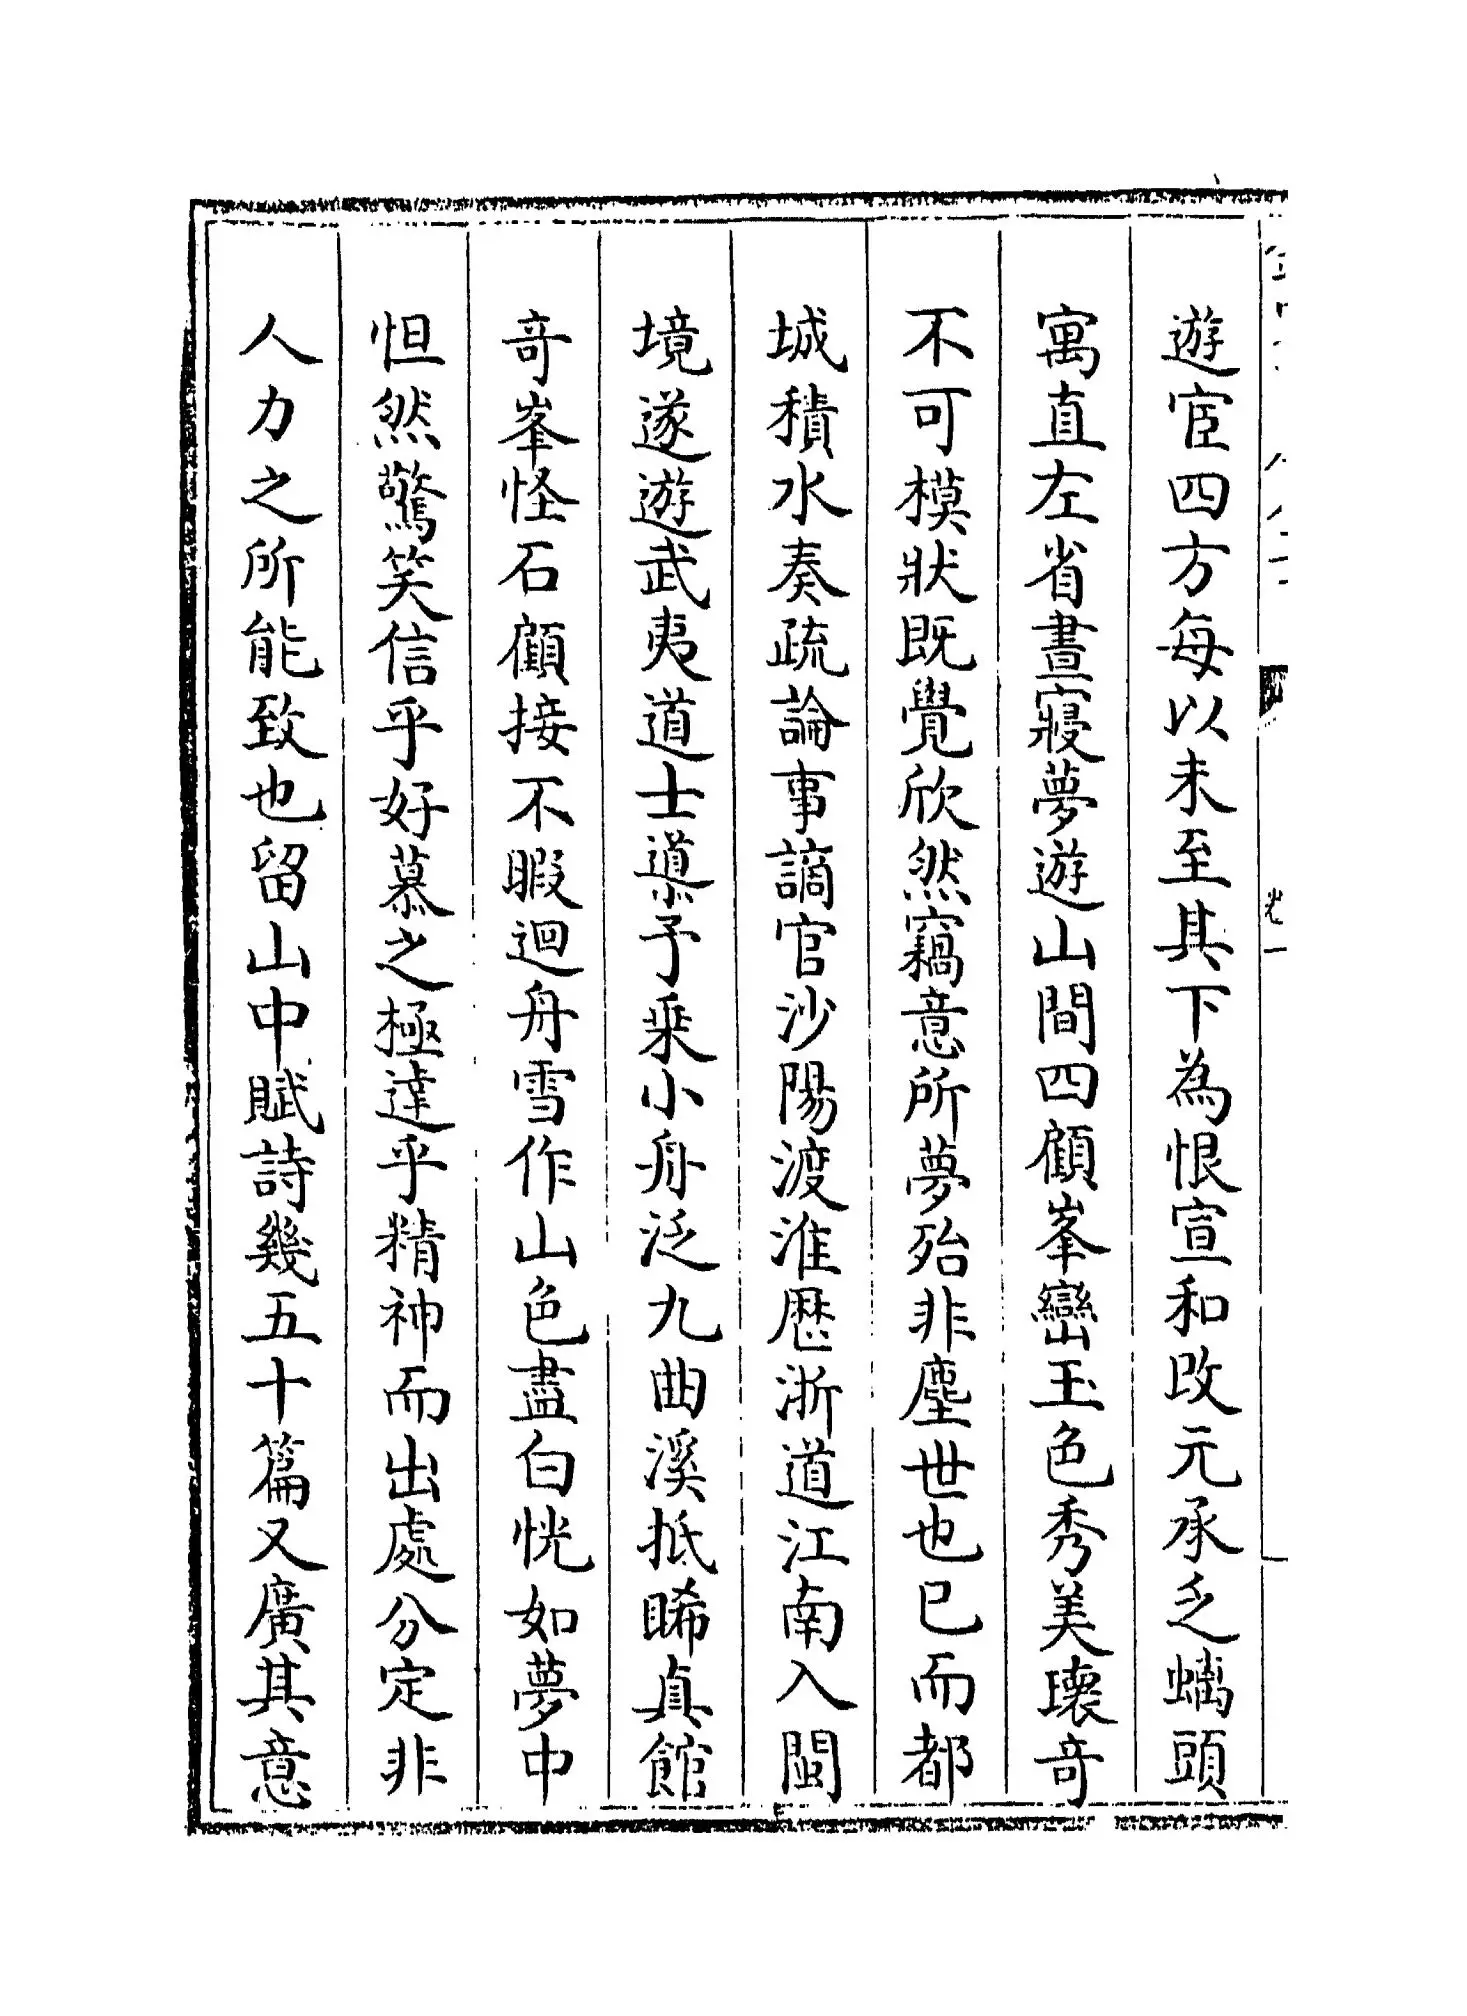 遊宦四方每以未至其下為恨宣和改元承乏螭頭
寓直左省晝寢夢遊山間四顧峯巒玉色秀美瓌奇
不可模狀既覺欣然竊意所夢殆非塵世也已而都
城積水奏疏論事謫官沙陽渡淮歷浙道江南入閩
境遂遊武夷道士導予乘小舟泛九曲溪抵睎真館
奇峯怪石顧接不暇迴舟雪作山色盡白恍如夢中
怛然驚笑信乎好慕之極達乎精神而出處分定非
人力之所能致也留山中賦詩幾五十篇又廣其意
卷一